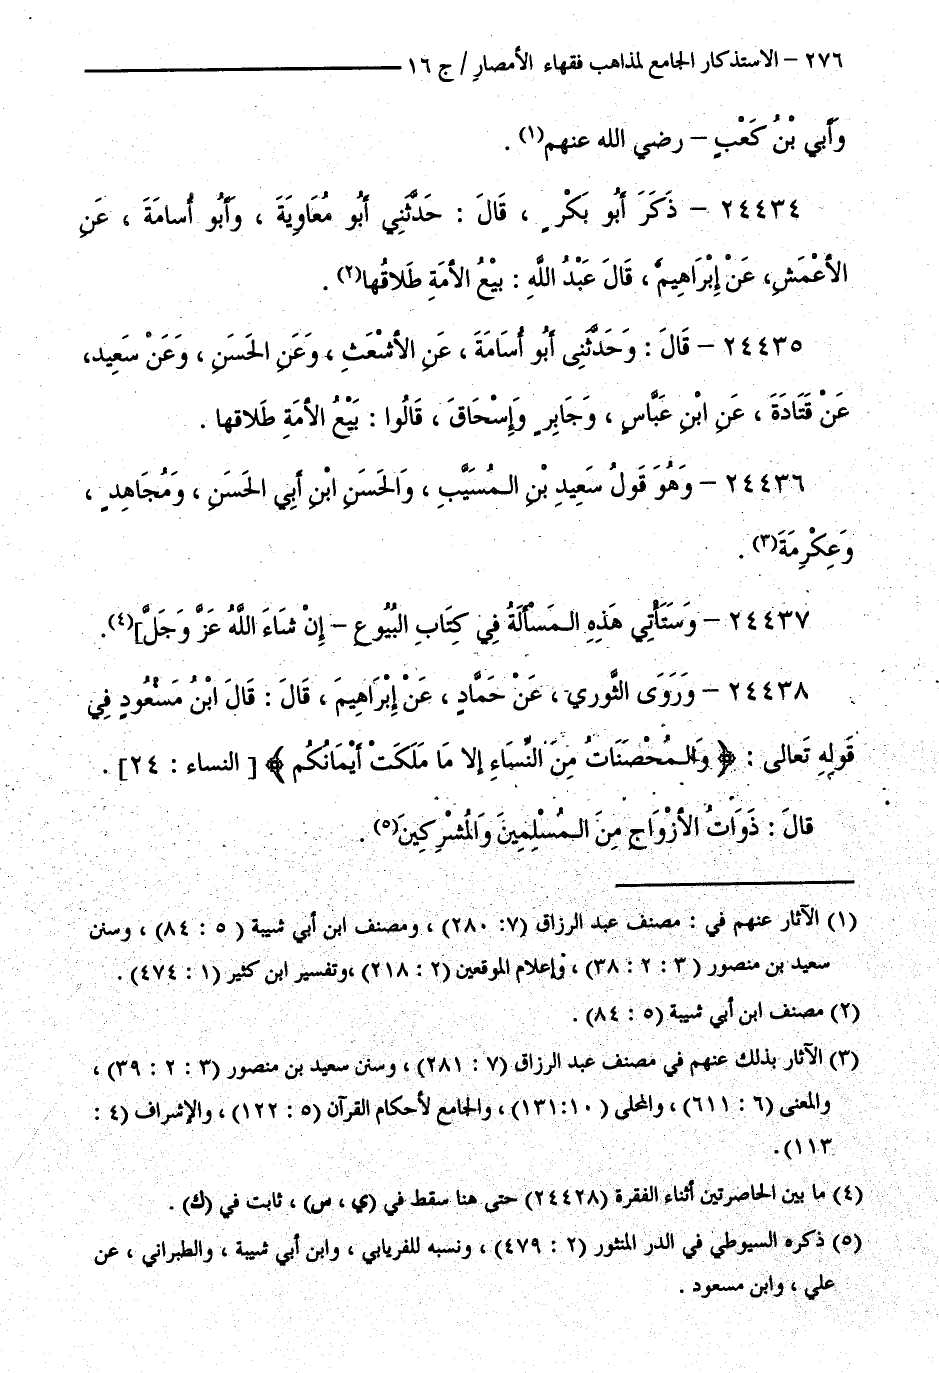 ٢٧٦ – الاستذكار الجامع لمذاهب فقهاء الأمصارِ / ج ١٦
وَأَبي بْنُ كَعْبٍ – رضي الله عنهم(١) .
٢٤٤٣٤ – ذَكَرَ أَبُو بَكْرٍ ، قَالَ : حَدَّثَنِي أَبُو مُعَاوِيَةَ ، وَأَبُو أُسامَةَ ، عَنِ
الأعْمَشِ، عَنْ إِبْرَاهِيمَ ، قَالَ عَبْدُ اللَّهِ : بيْعُ الأمَةِ طَلاقُها(٢) .
٢٤٤٣٥ – قَالَ : وَحَدَّثَنِى أَبُو أُسَامَةَ ، عَنِ الأشْعَثِ ، وَعَنِ الحَسَنِ ، وَعَنْ سَعِيد،
عَنْ قَتَادَةَ ، عَنِ ابْنِ عَبَّاسٍ ، وَجَابِرٍ وَإِسْحَاقَ ، قَالُوا : بَيْعُ الأمَةِ طَلاقها .
٢٤٤٣٦ – وَهُوَ قَولُ سَعِيدِ بْنِ الـمُسَيَّبِ ، وَالحَسَنِ ابْنِ أَبِي الحَسَنِ ، وَمُجَاهِدٍ ،
وَعِكْرِمَةَ(٣) .
٢٤٤٣٧ – وَسَتَأْتِي هَذِهِ الـمَسْأَلَةُ فِي كِتَابِ البُيُوعِ – إِنْ شَاءَ اللَّهُ عَزَّ وَجَلَّ](٤).
٢٤٤٣٨ – وَرَوَى الثَّوري ، عَنْ حَمَّادٍ ، عَنْ إِبْرَاهِيمَ ، قَالَ : قَالَ ابْنُ مَسْعُودٍ فِي
قَولِهِ تَعالى : ﴿ وَالـمُحْصَنَاتُ مِنَ النِّسَاءِ إلا مَا مَلَكَتْ أَيْمَانُكُم ﴾ [ النساء : ٢٤] .
قالَ : ذَوَاتُ الأزْوَاجِ مِنَ الـمُسْلِمِينَ وَالمُشْرِكِينَ(٥) .
(١) الآثار عنهم في : مصنف عبد الرزاق (٧: ٢٨٠) ، ومصنف ابن أبي شيبة ( ٥ : ٨٤) ، وسنن
سعيد بن منصور ( ٣ : ٢ : ٣٨) ، وإعلام الموقعين (٢ : ٢١٨) ،وتفسير ابن كثير (١ : ٤٧٤) .
(٢) مصنف ابن أبي شيبة (٥ : ٨٤) .
(٣) الآثار بذلك عنهم في مصنف عبد الرزاق (٧ : ٢٨١) ، وسنن سعيد بن منصور (٣ : ٢ : ٣٩) ،
والمغنى (٦ : ٦١١) ، والمحلى ( ١٠:١٣١) ، والجامع لأحكام القرآن (٥ : ١٢٢) ، والإشراف (٤ :
١١٣).
(٤) ما بين الحاصرتين أثناء الفقرة (٢٤٤٢٨) حتى هنا سقط في (ي ، س) ، ثابت في (ك) .
(٥) ذكره السيوطي في الدر المنثور (٢ : ٤٧٩) ، ونسبه للفريابي ، وابن أبي شيبة ، والطبراني ، عن
علي ، وابن مسعود .